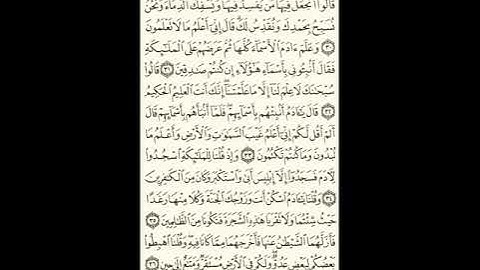 قَالُوٓا۟ أَتَجْعَلُ فِيهَا مَن يُفْسِدُ فِيهَا وَيَسْفِكُ ٱلدِّمَآءَ وَنَحْنُ
نُسَبِّحُ بِحَمْدِكَ وَنُقَدِّسُ لَكَ ۖ قَالَ إِنِّىٓ أَعْلَمُ مَا لَا تَعْلَمُونَ
٣٠ وَعَلَّمَ ءَادَمَ ٱلْأَسْمَآءَ كُلَّهَا ثُمَّ عَرَضَهُمْ عَلَى ٱلْمَلَٰٓئِكَةِ
فَقَالَ أَنۢبِـُٔونِى بِأَسْمَآءِ هَٰٓؤُلَآءِ إِن كُنتُمْ صَٰدِقِينَ ٣١ قَالُوا۟
سُبْحَٰنَكَ لَا عِلْمَ لَنَآ إِلَّا مَا عَلَّمْتَنَآ ۖ إِنَّكَ أَنتَ ٱلْعَلِيمُ ٱلْحَكِيمُ
٣٢ قَالَ يَٰٓـَٔادَمُ أَنۢبِئْهُم بِأَسْمَآئِهِمْ ۖ فَلَمَّآ أَنۢبَأَهُم بِأَسْمَآئِهِمْ قَالَ
أَلَمْ أَقُل لَّكُمْ إِنِّىٓ أَعْلَمُ غَيْبَ ٱلسَّمَٰوَٰتِ وَٱلْأَرْضِ وَأَعْلَمُ مَا
تُبْدُونَ وَمَا كُنتُمْ تَكْتُمُونَ ٣٣ وَإِذْ قُلْنَا لِلْمَلَٰٓئِكَةِ ٱسْجُدُوا۟
لِـَٔادَمَ فَسَجَدُوٓا۟ إِلَّآ إِبْلِيسَ أَبَىٰ وَٱسْتَكْبَرَ وَكَانَ مِنَ ٱلْكَٰفِرِينَ
٣٤ وَقُلْنَا يَٰٓـَٔادَمُ ٱسْكُنْ أَنتَ وَزَوْجُكَ ٱلْجَنَّةَ وَكُلَا مِنْهَا رَغَدًا
حَيْثُ شِئْتُمَا وَلَا تَقْرَبَا هَٰذِهِ ٱلشَّجَرَةَ فَتَكُونَا مِنَ ٱلظَّٰلِمِينَ ٣٥
فَأَزَلَّهُمَا ٱلشَّيْطَٰنُ عَنْهَا فَأَخْرَجَهُمَا مِمَّا كَانَا فِيهِ ۖ وَقُلْنَا ٱهْبِطُوا۟
بَعْضُكُمْ لِبَعْضٍ عَدُوٌّ ۖ وَلَكُمْ فِى ٱلْأَرْضِ مُسْتَقَرٌّ وَمَتَٰعٌ إِلَىٰ حِينٍ ٣٦